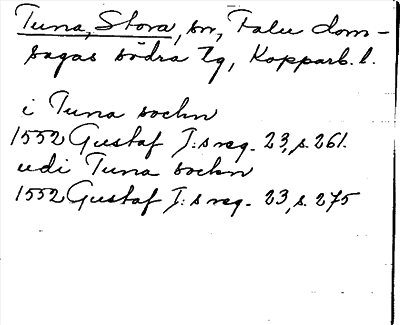 Tuna, Stora, sn, Falu dom-
sagas södra tg, Kopparb. l.
i Tuna sockn
1552 Gustaf I:s reg. 23, s. 261.
udi Tuna sockn
1552 Gustaf I:s reg. 23, s. 275